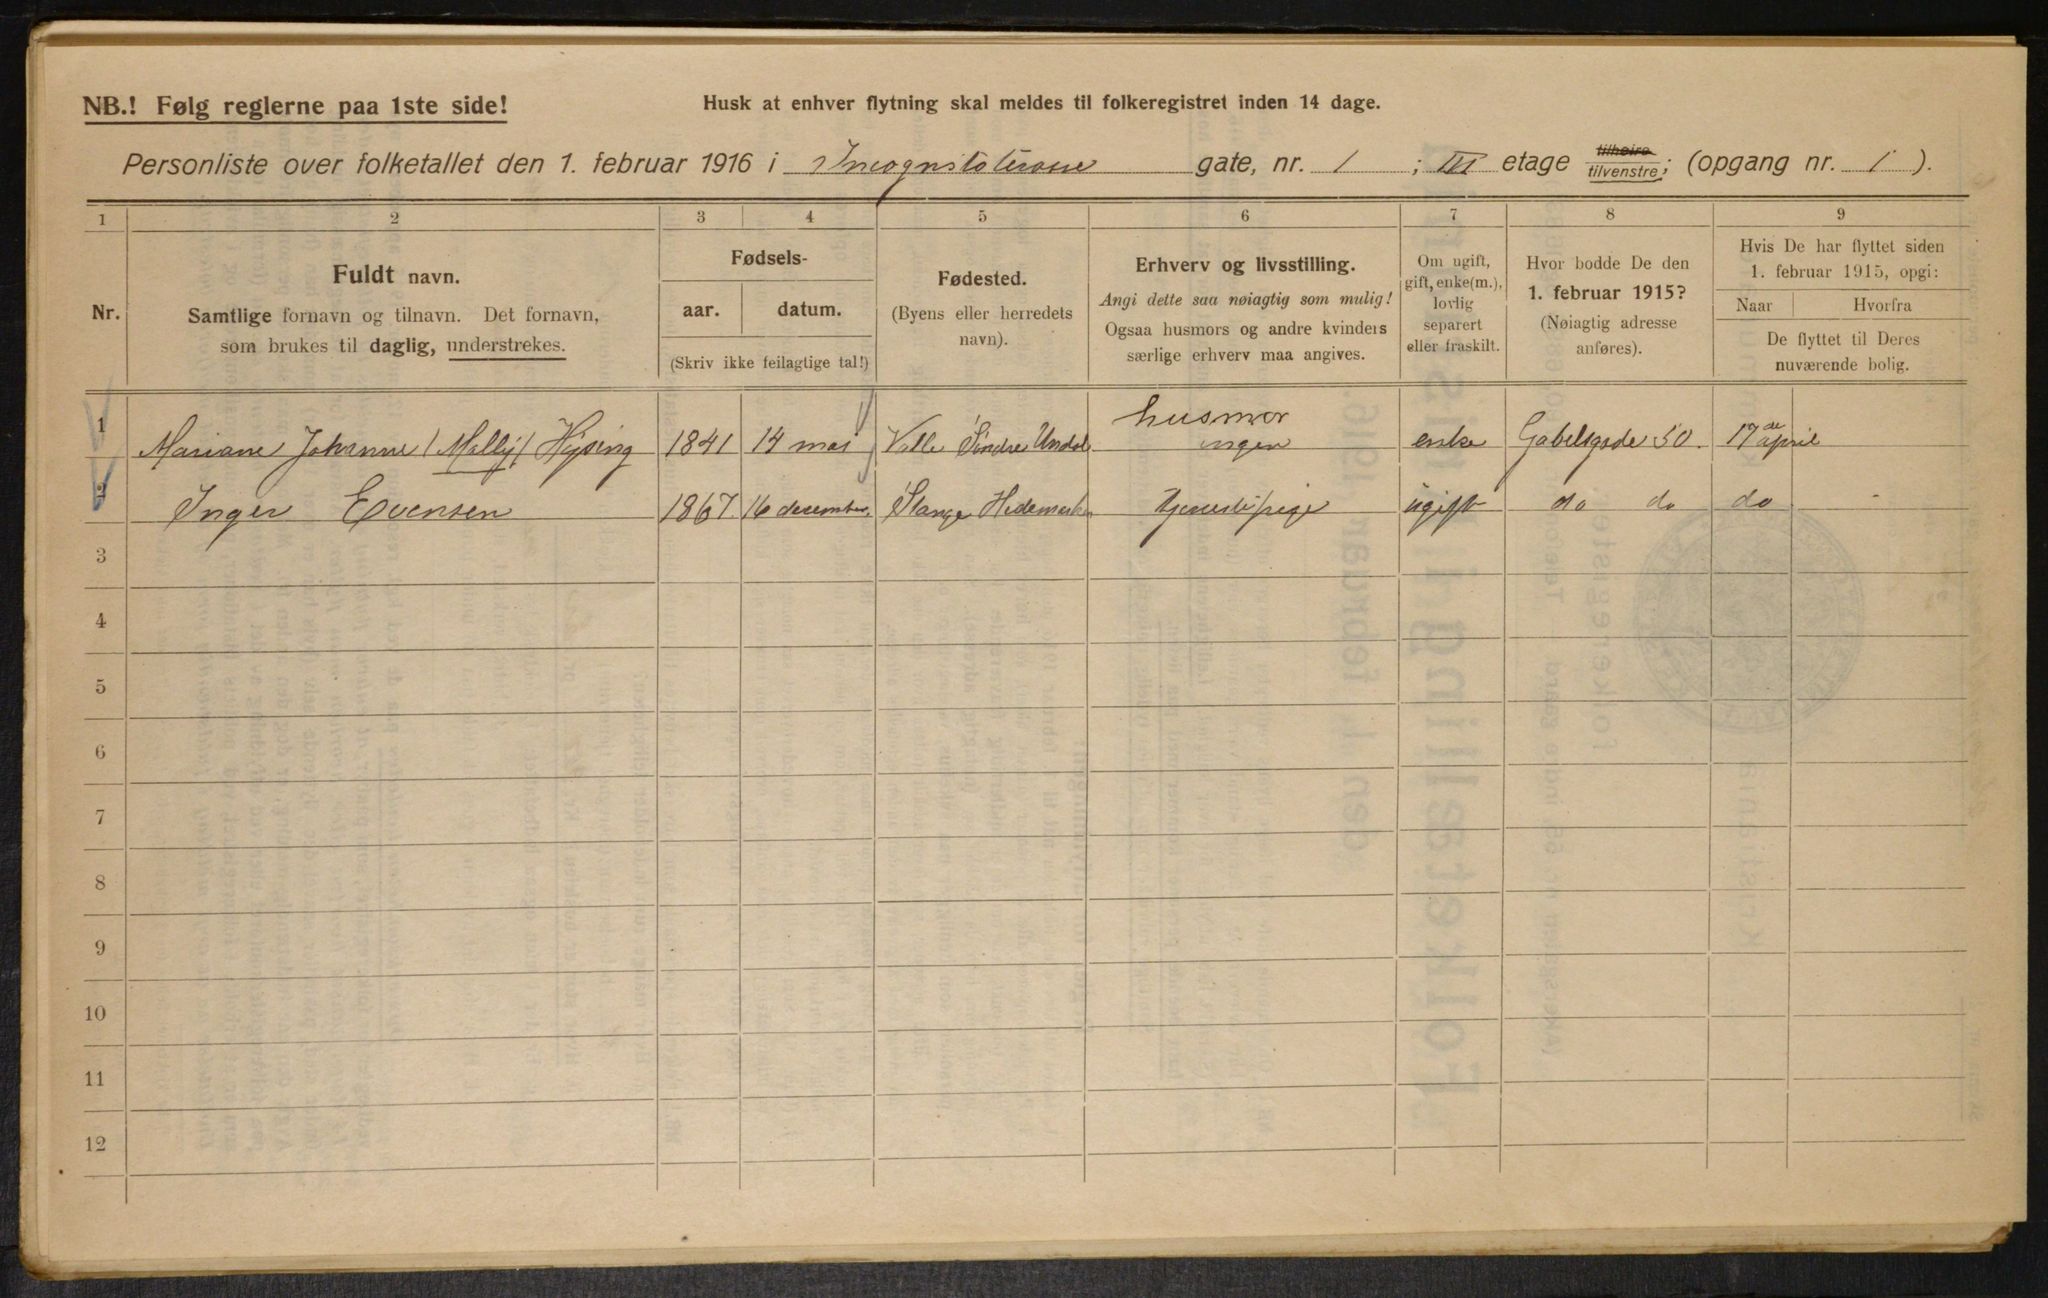 NB.! Følg reglerne paa 1ste side!
Husk at enhver flytning skal meldes til folkeregistret inden 14 dage.
Personliste over folketallet den 1. februar 1916 i Incognitoterasse gate, nr. 1 ; III etage tilhøire tilvenstre; (opgang nr. 1 ).
1 2 3 4 5 6 7 8 9
Nr.
Fuldt navn.
Samtlige fornavn og tilnavn. Det fornavn,
som brukes til daglig, understrekes.
Fødsels-
aar. datum.
(Skriv ikke feilagtige tal!)
Fødested.
(Byens eller herredets
navn).
Erhverv og livsstilling.
Angi dette saa nøiagtig som mulig!
Ogsaa husmors og andre kvinders
særlige erhverv maa angives.
Om ugift,
gift, enke(m.),
lovlig
separert
eller fraskilt.
Hvor bodde De den
1. februar 1915?
(Nøiagtig adresse
anføres).
Hvis De har flyttet siden
1. februar 1915, opgi:
Naar Hvorfra
De flyttet til Deres
nuværende bolig.
1 Mariane Johanne (Mally) Hysing 1841 14 mai Valle Søndre Undal husmor ingen enke Gabelsgade 50. 17de april
2 Inger Evensen 1867. 16 december. Stange Hedemarken tjenestepige ugift do do do -
3
4
5
6
7
8
9
10
11
12